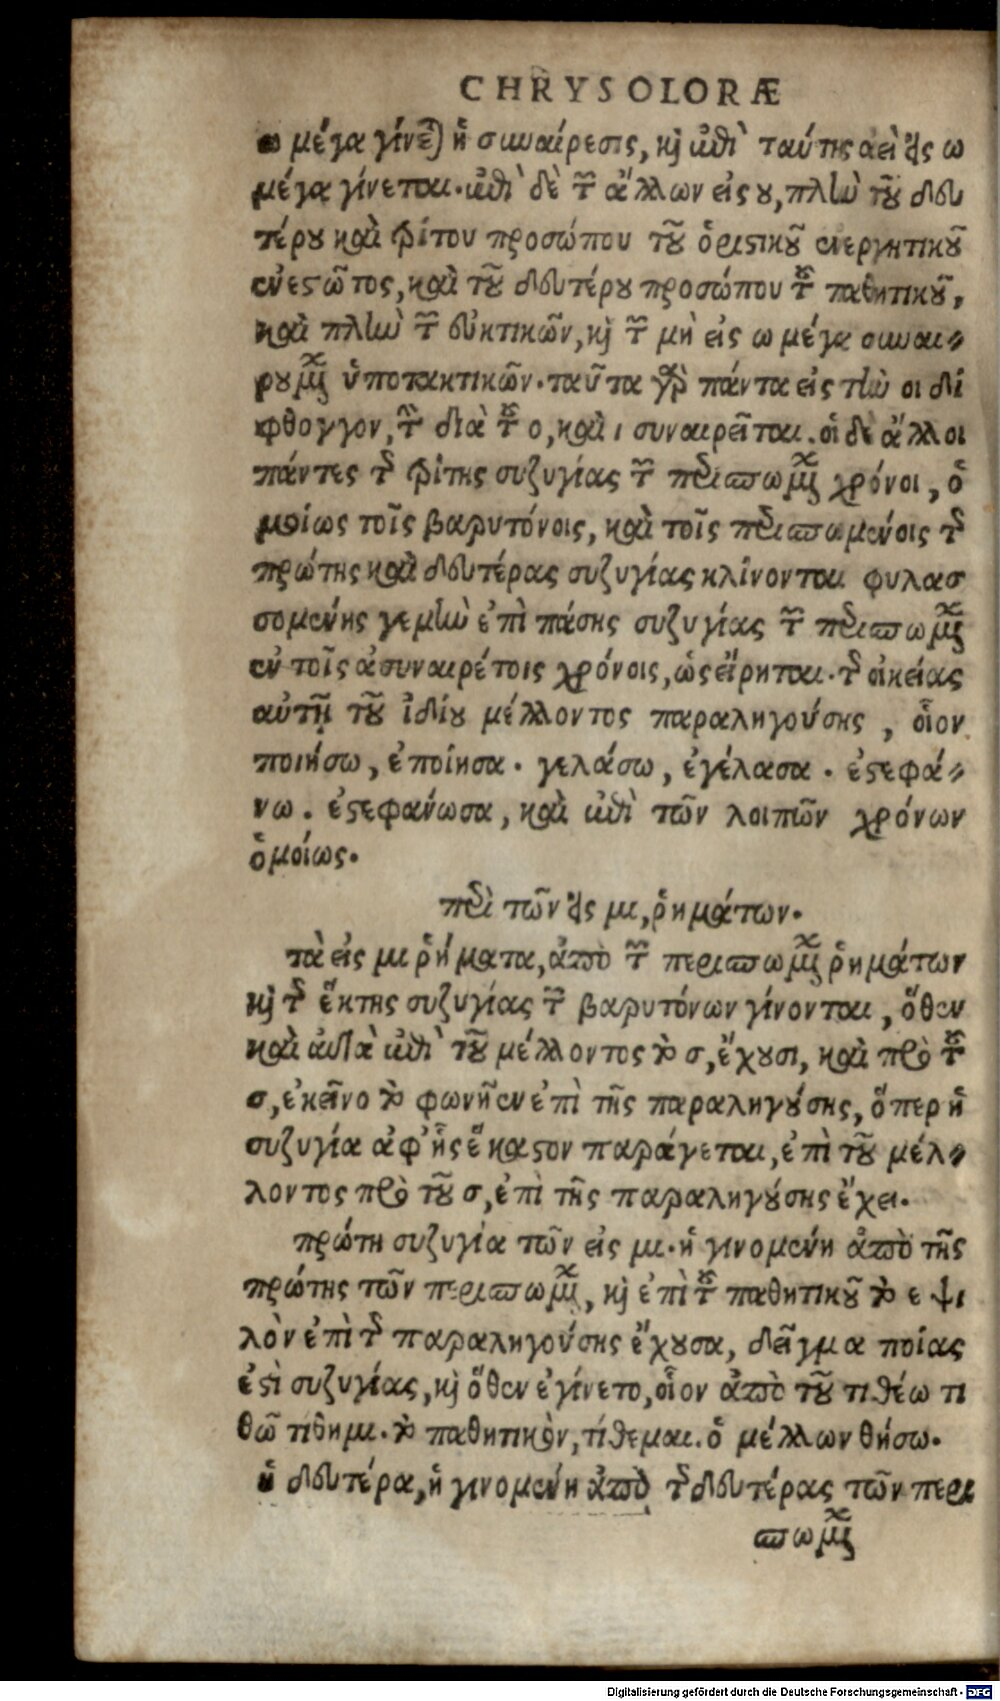 CHRYSOLORÆ
ω μέγα γίνεται ἡ συναίρεσις, καὶ ἐπὶ ταύτης ἀεὶ εἰς ω
μέγα γίνεται. ἐπὶ δὲ τῶν ἄλλων εἰς ου, πλὴν τοῦ δευ
τέρου καὶ τρίτου προσώπου τοῦ ὁριστικοῦ ἐνεργητικοῦ
ἐνεστῶτος, καὶ τοῦ δευτέρου προσώπου τοῦ παθητικοῦ,
καὶ πλὴν τῶν εὐκτικῶν, καὶ τῶν μὴ εἰς ω μέγα συναι-
ρουμένων ὑποτακτικῶν. ταῦτα γὰρ πάντα εἰς τὴν οι δί
φθογγον, τὴν διὰ τοῦ ο, καὶ ι συναιρεῖται. οἱ δὲ ἄλλοι
πάντες τῆς τρίτης συζυγίας τῶν περισπωμένων χρόνοι, ὁ
μοίως τοῖς βαρυτόνοις, καὶ τοῖς περισπωμένοις τῆς
πρώτης καὶ δευτέρας συζυγίας κλίνονται φυλασ
σομένης γεμὴν ἐπὶ πάσης συζυγίας τῶν περισπωμένων
ἐν τοῖς ἀσυναιρέτοις χρόνοις, ὡς εἴρηται. τῆς οἰκείας
αὐτῇ τοῦ ἰδίου μέλλοντος παραληγούσης, οἷον
ποιήσω, ἐποίησα. γελάσω, ἐγέλασα. ἐστεφά-
νω. ἐστεφάνωσα, καὶ ἐπὶ τῶν λοιπῶν χρόνων
ὁμοίως.
περὶ τῶν εἰς μι, ῥημάτων.
τὰ εἰς μι ῥήματα, ἀπὸ τῶν περισπωμένων ῥημάτων
καὶ τῆς ἕκτης συζυγίας τῶν βαρυτόνων γίνονται, ὅθεν
καὶ αὐτὰ ἐπὶ τοῦ μέλλοντος τὸ σ, ἔχουσι, καὶ πρὸ τοῦ
σ, ἐκεῖνο τὸ φωνῆεν ἐπὶ τῆς παραληγούσης, ὅπερ ἡ
συζυγία ἀφ' ἧς ἕκαστον παράγεται, ἐπὶ τοῦ μέλ-
λοντος πρὸ τοῦ σ, ἐπὶ τῆς παραληγούσης ἔχει.
πρώτη συζυγία τῶν εἰς μι. ἡ γινομένη ἀπὸ τῆς
πρώτης τῶν περισπωμένων, καὶ ἐπὶ τοῦ παθητικοῦ τὸ ε ψι
λὸν ἐπὶ τῆς παραληγούσης ἔχουσα, δεῖγμα ποίας
ἐστὶ συζυγίας, καὶ ὅθεν ἐγίνετο, οἷον ἀπὸ τοῦ τιθέω τι
θῶ τίθημι. τὸ παθητικὸν, τίθεμαι. ὁ μέλλων θήσω.
ἡ δευτέρα, ἡ γινομένη ἀπὸ τῆς δευτέρας τῶν περι
σπωμένων
Digitalisierung gefördert durch die Deutsche Forschungsgemeinschaft - DFG